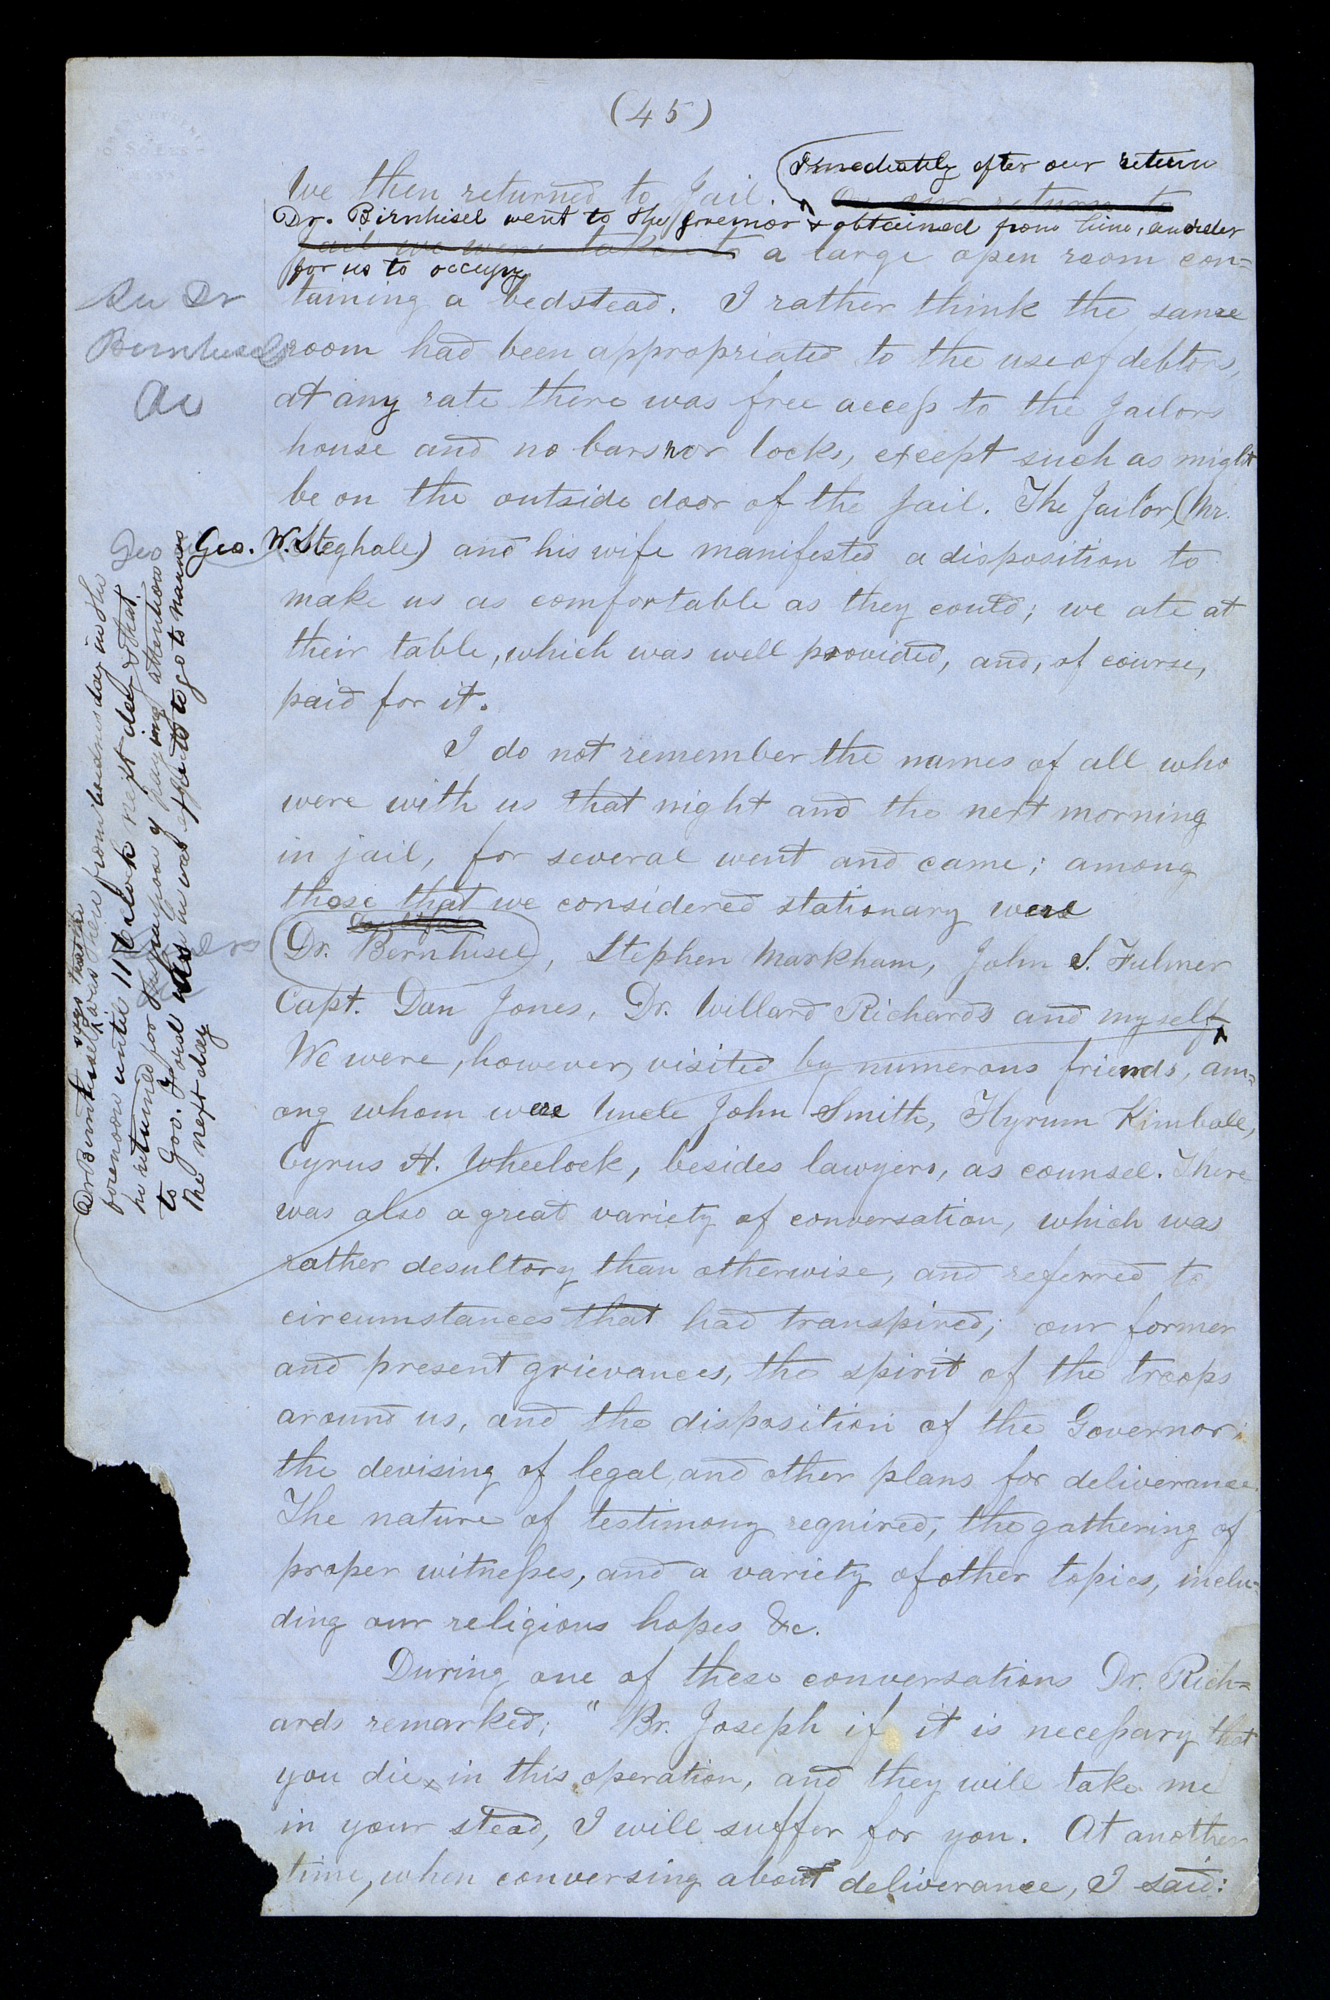 (45)
Immediately after our return
We then returned to Jail. On our return to
Dr. Birnhisel went to the Governor & obtained from him, an order
jail we were taken to a large open room con=
for us to occupy
taining a bedstead. I rather think the same
See Dr
Bernhisels
room had been appropriated to the use of debtors,
at any rate there was free access to the Jailors
house and no bars nor locks, except such as might
be on the outside door of the Jail. The Jailor (Mr.
Geo. W. Steghale) and his wife manifested a disposition to
make us as comfortable as they could; we ate at
their table, which was well provided, and, of course,
paid for it.
I do not remember the names of all who
were with us that night and the next morning
in jail, for several went and came; among
those that we considered stationary were
Dr. Bernhisel, Stephen Markham, John S. Fulmer
Capt. Dan Jones, Dr. Willard Richards and myself
We were, however, visited by numerous friends, am=
ong whom were Uncle John Smith, Hyrum Kimball,
Cyrus H. Wheelock, besides lawyers, as counsel. There
was also a great variety of conversation, which was
rather desultory than otherwise, and referred to
circumstances that had transpired; our former
and present grievances, the spirit of the troops
around us, and the disposition of the Governor;
the devising of legal and other plans for deliverance.
The nature of testimony required, the gathering of
proper witnesses, and a variety of other topics, inclu=
ding our religious hopes &c.
During one of these conversations Dr. Rich=
ards remarked; "Br. Joseph if it is necessary that
you die in this operation, and they will take me
in your stead, I will suffer for you. At another
time, when conversing about deliverance, I said:
Dr Bernhisel says that he
was there from Wednesday in the
forenoon until 11 o'clock next day & that
he returned for the purpose of paying attention
to Gov. Ford as he was expected to go to nauvoo
the next day